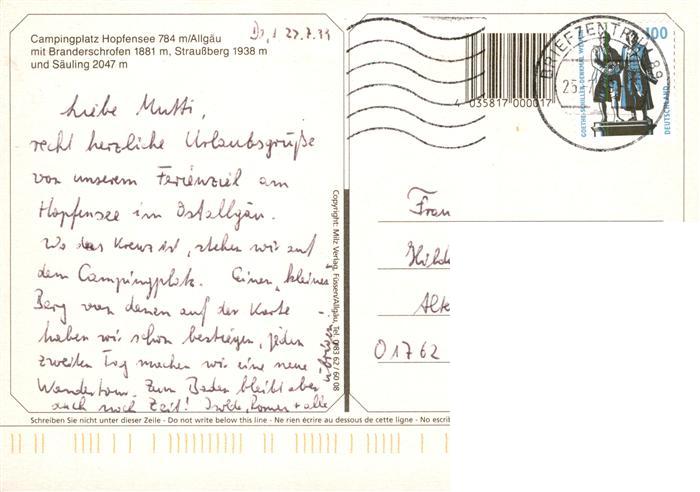 Campingplatz Hopfensee 784 m/Allgäu
mit Branderschrofen 1881 m, Straußberg 1938 m
und Säuling 2047 m
27.7.99
Liebe Mutti,
recht herzliche Urlaubsgrüße
von unserem Ferienziel am
Hopfensee im Ostallgäu.
Wo das Kreuz ist, stehen wir auf
dem Campingplatz. Einen "kleinen"
Berg von denen auf der Karte
haben wir schon bestiegen, jeden
zweiten Tag machen wir eine neue
Wandertour. Zum Baden bleibt aber
auch noch Zeit! Isolde, + alle
übrigen
Copyright: Milz Verlag, Füssen/Allgäu, Tel. 083 62/60 08
4 035817 000017
BRIEFZENTRUM 89
GOETHE-SCHILLER-DENKMAL WEIMAR
100
DEUTSCHLAND
Frau
Hild
Alte
01762
Schreiben Sie nicht unter dieser Zeile - Do not write below this line - Ne rien écrire au dessous de cette ligne - No escrib